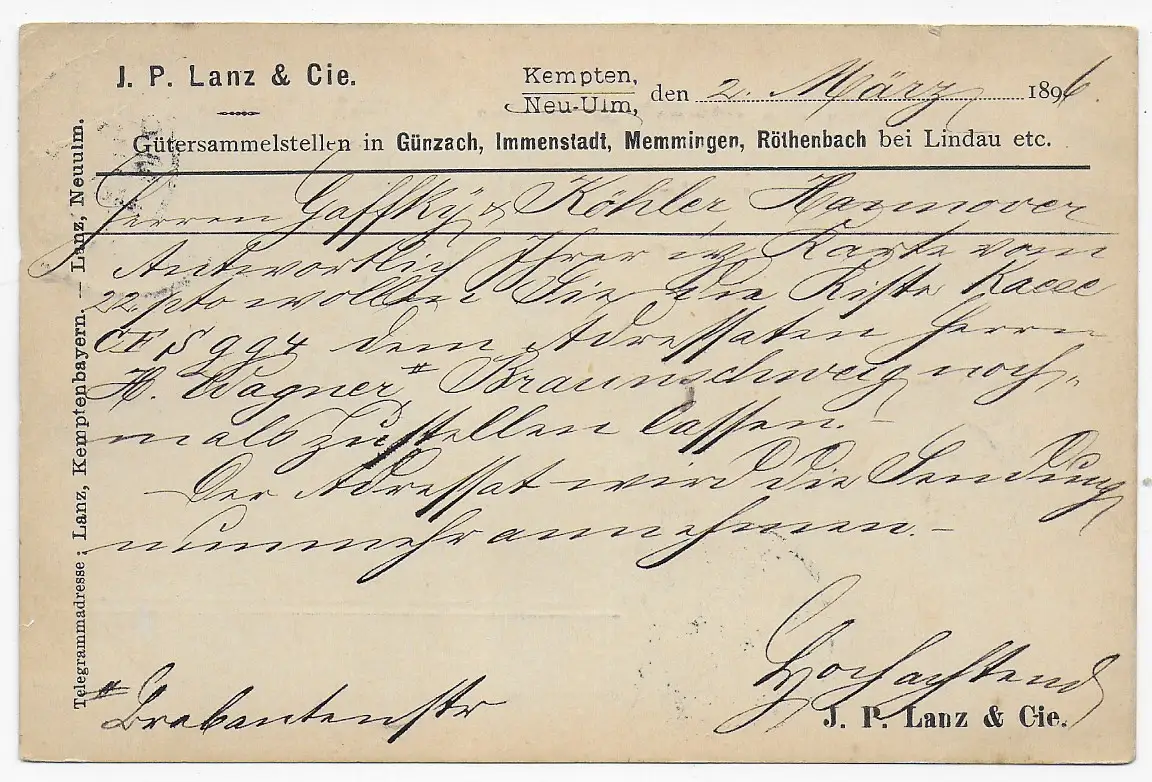 J. P. Lanz & Cie.
Kempten,
Neu-Ulm, den 2. März 1896.
Gütersammelstellen in Günzach, Immenstadt, Memmingen, Röthenbach bei Lindau etc.
Telegrammadresse: Lanz, Kemptenbayern. — Lanz, Neuulm.
Herren Gaffky & Köhler Hannover
Antwortlich Ihrer Karte vom
22. pto wollen Sie die Kiste Kaese
9994 dem Adressaten Herrn
H. Wagner,# Braunschweig noch-
mals zustellen lassen.—
Der Adressat wird die Sendung
nunmehr annehmen.—
Hochachtend
J. P. Lanz & Cie.
# Brabantenstr